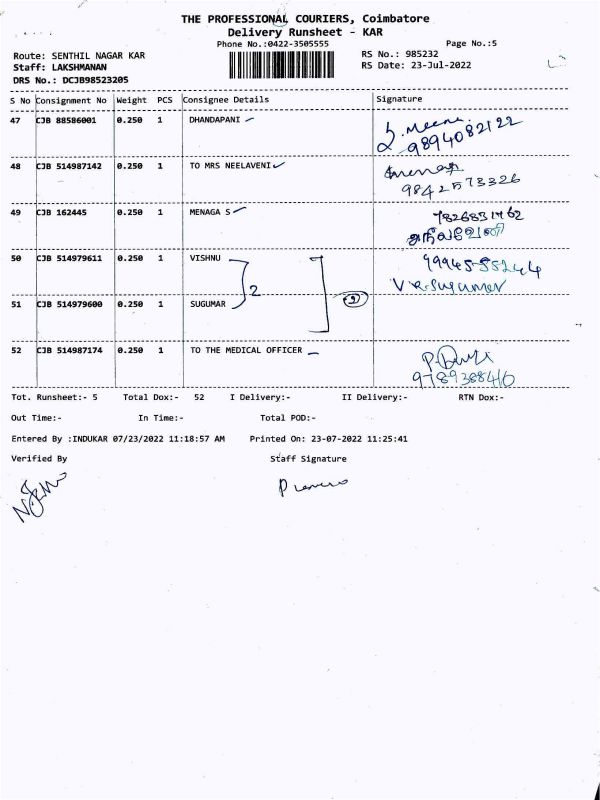 THE PROFESSIONAL COURIERS, Coimbatore
Delivery Runsheet - KAR
Phone No.:0422-3505555 Page No.:5
Route: SENTHIL NAGAR KAR RS No.: 985232
Staff: LAKSHMANAN RS Date: 23-Jul-2022
DRS No.: DCJB98523205
S No Consignment No Weight PCS Consignee Details Signature
47 CJB 88586001 0.250 1 DHANDAPANI
9894082122
48 CJB 514987142 0.250 1 TO MRS NEELAVENI
9842573326
49 CJB 162445 0.250 1 MENAGA S
50 CJB 514979611 0.250 1 VISHNU
2
V R.Sugumar
51 CJB 514979600 0.250 1 SUGUMAR
52 CJB 514987174 0.250 1 TO THE MEDICAL OFFICER
9789388410
Tot. Runsheet:- 5 Total Dox:- 52 I Delivery:- II Delivery:- RTN Dox:-
Out Time:- In Time:- Total POD:-
Entered By :INDUKAR 07/23/2022 11:18:57 AM Printed On: 23-07-2022 11:25:41
Verified By Staff Signature